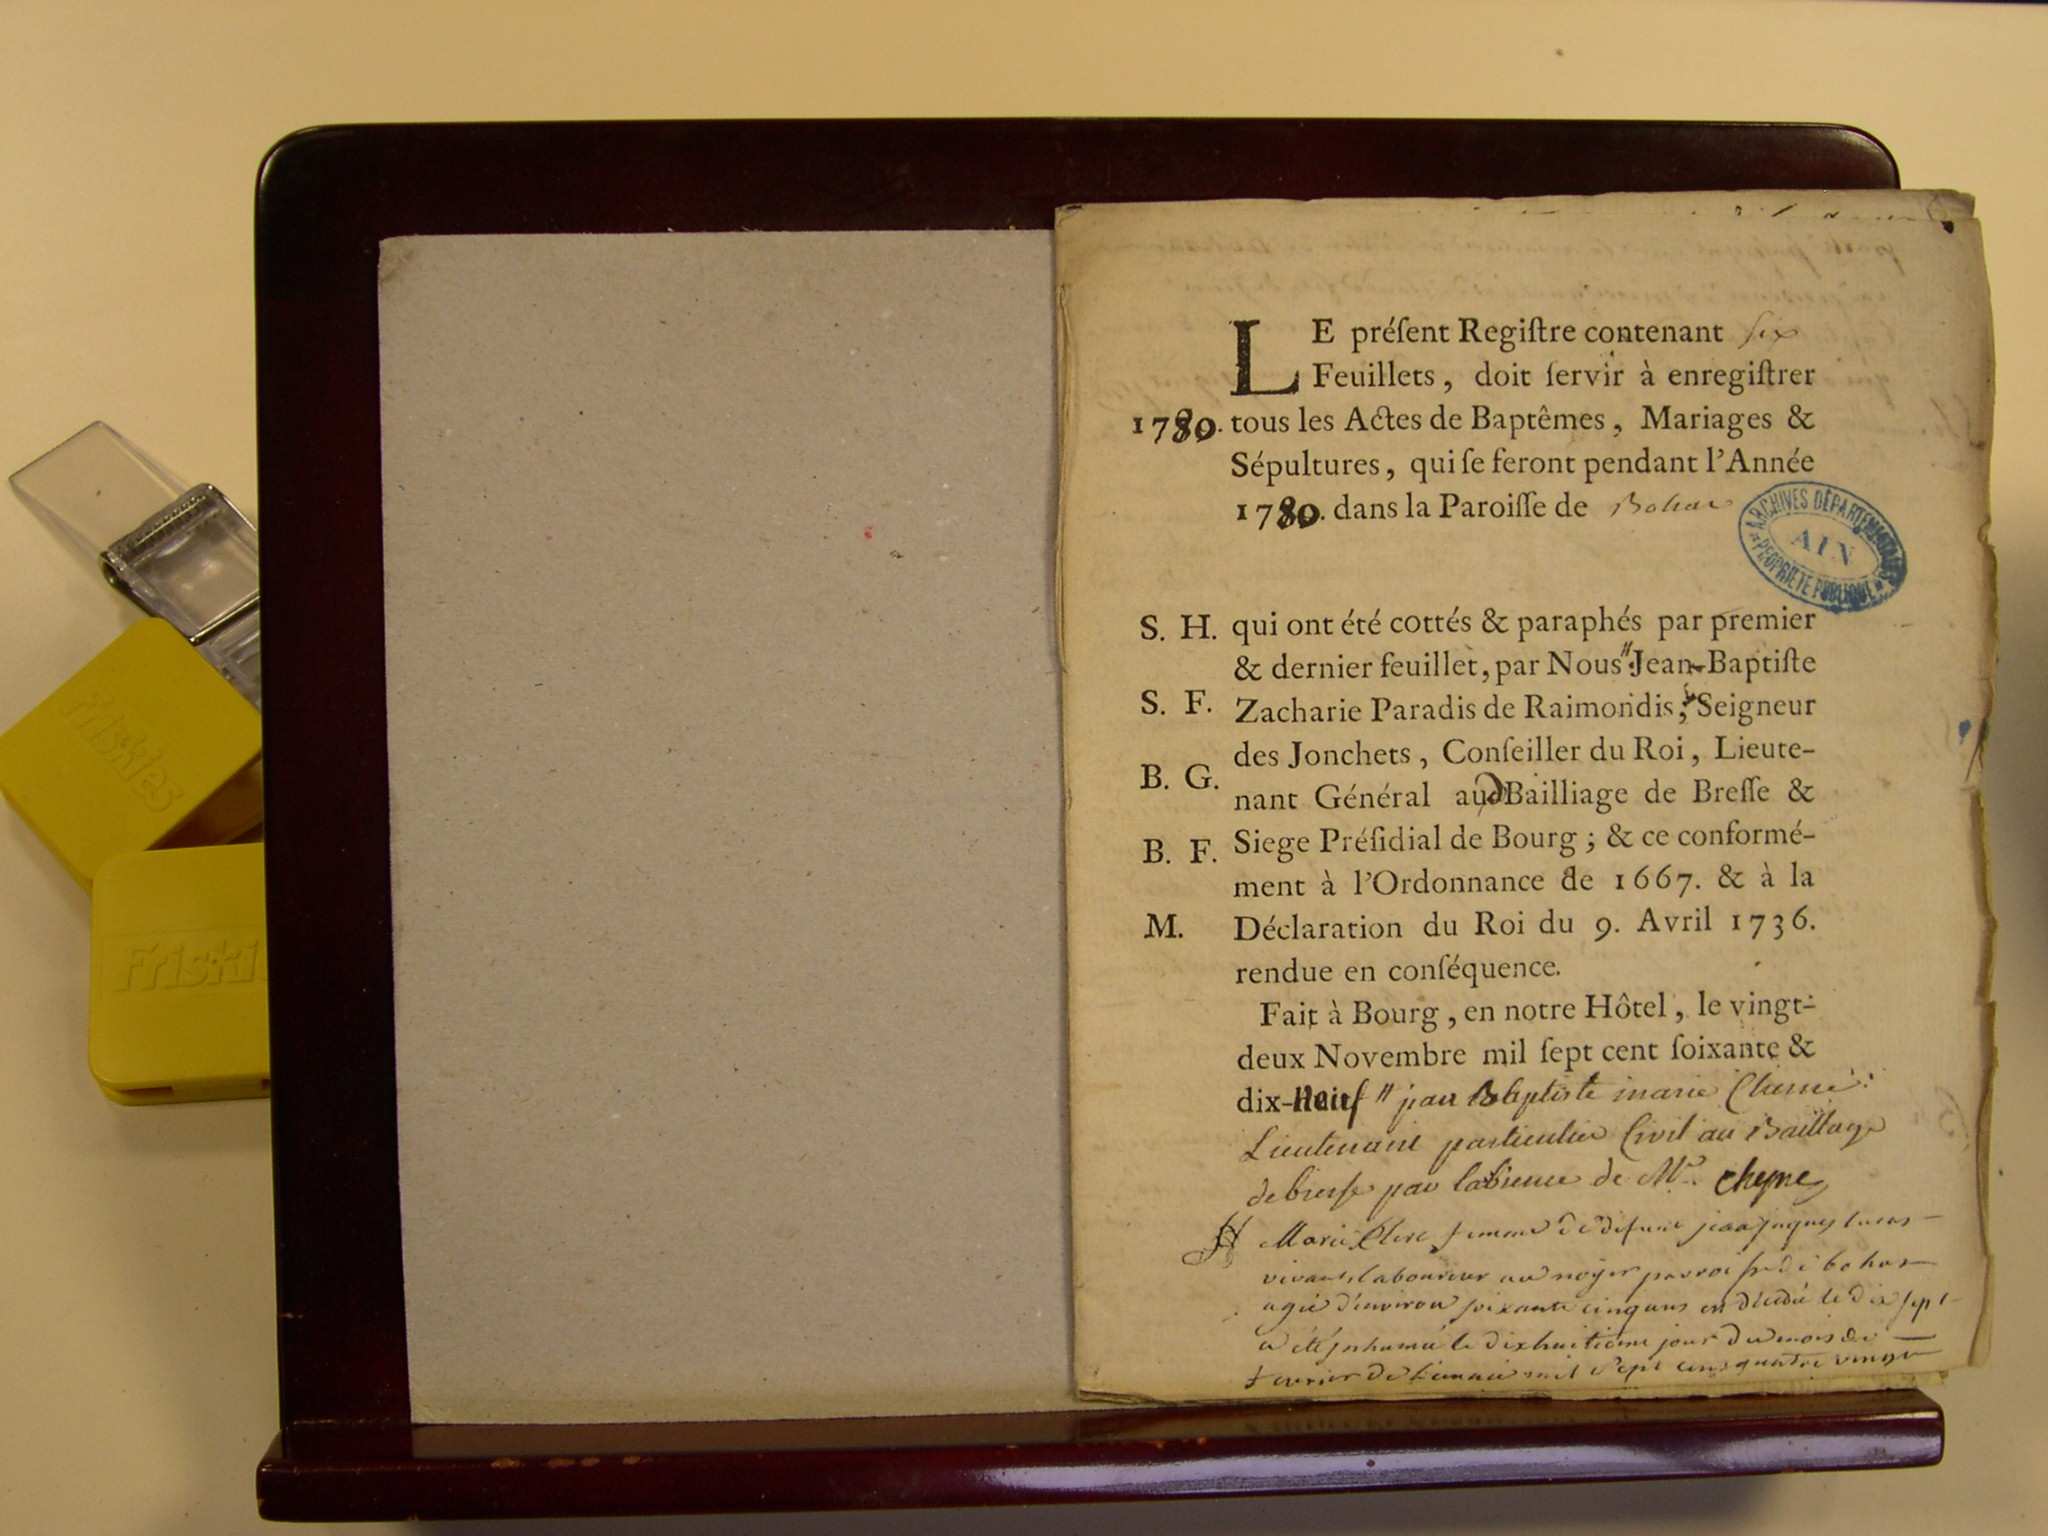 LE préſent Regiſtre contenant six
Feuillets, doit ſervir à enregiſtrer
1780. tous les Actes de Baptêmes, Mariages &
Sépultures, qui ſe feront pendant l'Année
1780. dans la Paroiſſe de Bohas
ARCHIVES DÉPARTEMENTALES
AIN
PROPRIÉTÉ PUBLIQUE
S. H. qui ont été cottés & paraphés par premier
& dernier feuillet, par Nous Jean-Baptiſte
S. F. Zacharie Paradis de Raimondis, Seigneur
des Jonchets, Conſeiller du Roi, Lieute-
B. G. nant Général au Bailliage de Breſſe &
B. F. Siege Préſidial de Bourg; & ce conformé-
ment à l'Ordonnance de 1667. & à la
M. Déclaration du Roi du 9. Avril 1736.
rendue en conſéquence.
Fait à Bourg, en notre Hôtel, le vingt-
deux Novembre mil ſept cent ſoixante &
dix-neuf " jean Baptiste marie
Lieutenant particulier Civil au Baillage
de bresse par l'absence de Mr. cheyne
Marie Clere femme de defunt jean jaques
vivant laboureur au noyer parroisse de bohas
agée d'environ soixante cinq ans est décédée le dix sept
a été inhumée le dixhuitieme jour du mois de
fevrier de l'année mil sept cens quatre vingt
Friskies
Friski